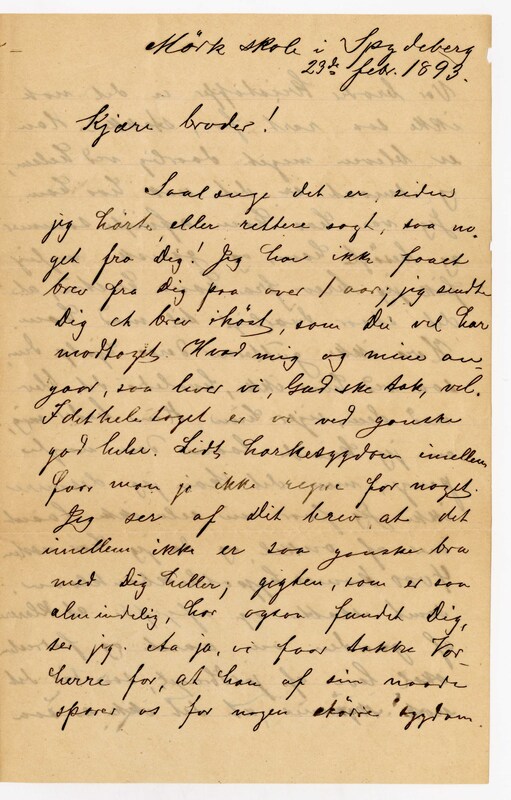 Mörk skole i Spydeberg
23de febr. 1893.
Kjære broder!
Saalænge det er, siden
jeg hörte, eller rettere sagt, saa no-
get fra Dig! Jeg har ikke faaet
brev fra Dig paa over 1 aar; jeg sendte
Dig et brev ihöst, som Du vel har
modtaget. Hvad mig og mine an-
gaar, saa lever vi, Gud ske tak, vel.
Idethele taget er vi ved ganske
god helse. Lidt harkesygdom imellem
faar man jo ikke regne for noget.
Jeg ser af dit brev, at det
imellem ikke er saa ganske bra
med Dig heller; gigten, som er saa
almindelig, har ogsaa fundet Dig,
ser jeg. Aa ja, vi faar takke Vor-
herre for, at han af sin naade
sparer os for nogen större sygdom.